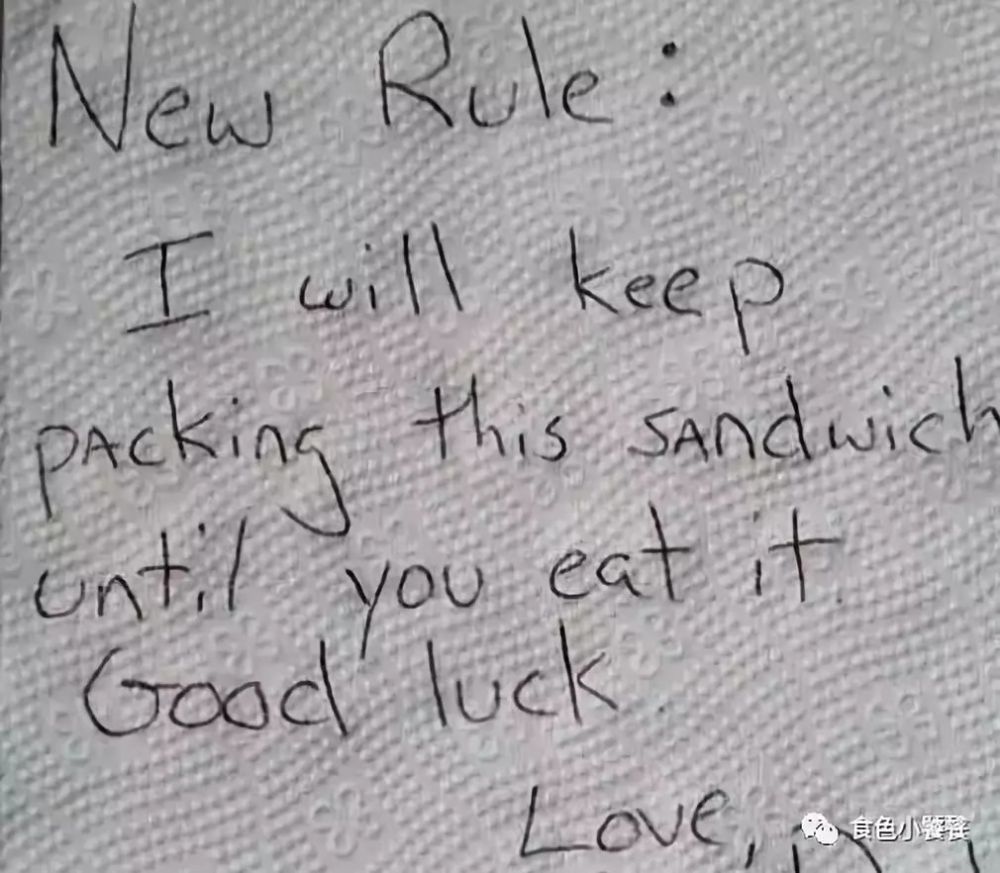 New Rule:
I will keep
packing this sandwich
until you eat it.
Good luck.
Love,
食色小饕餮